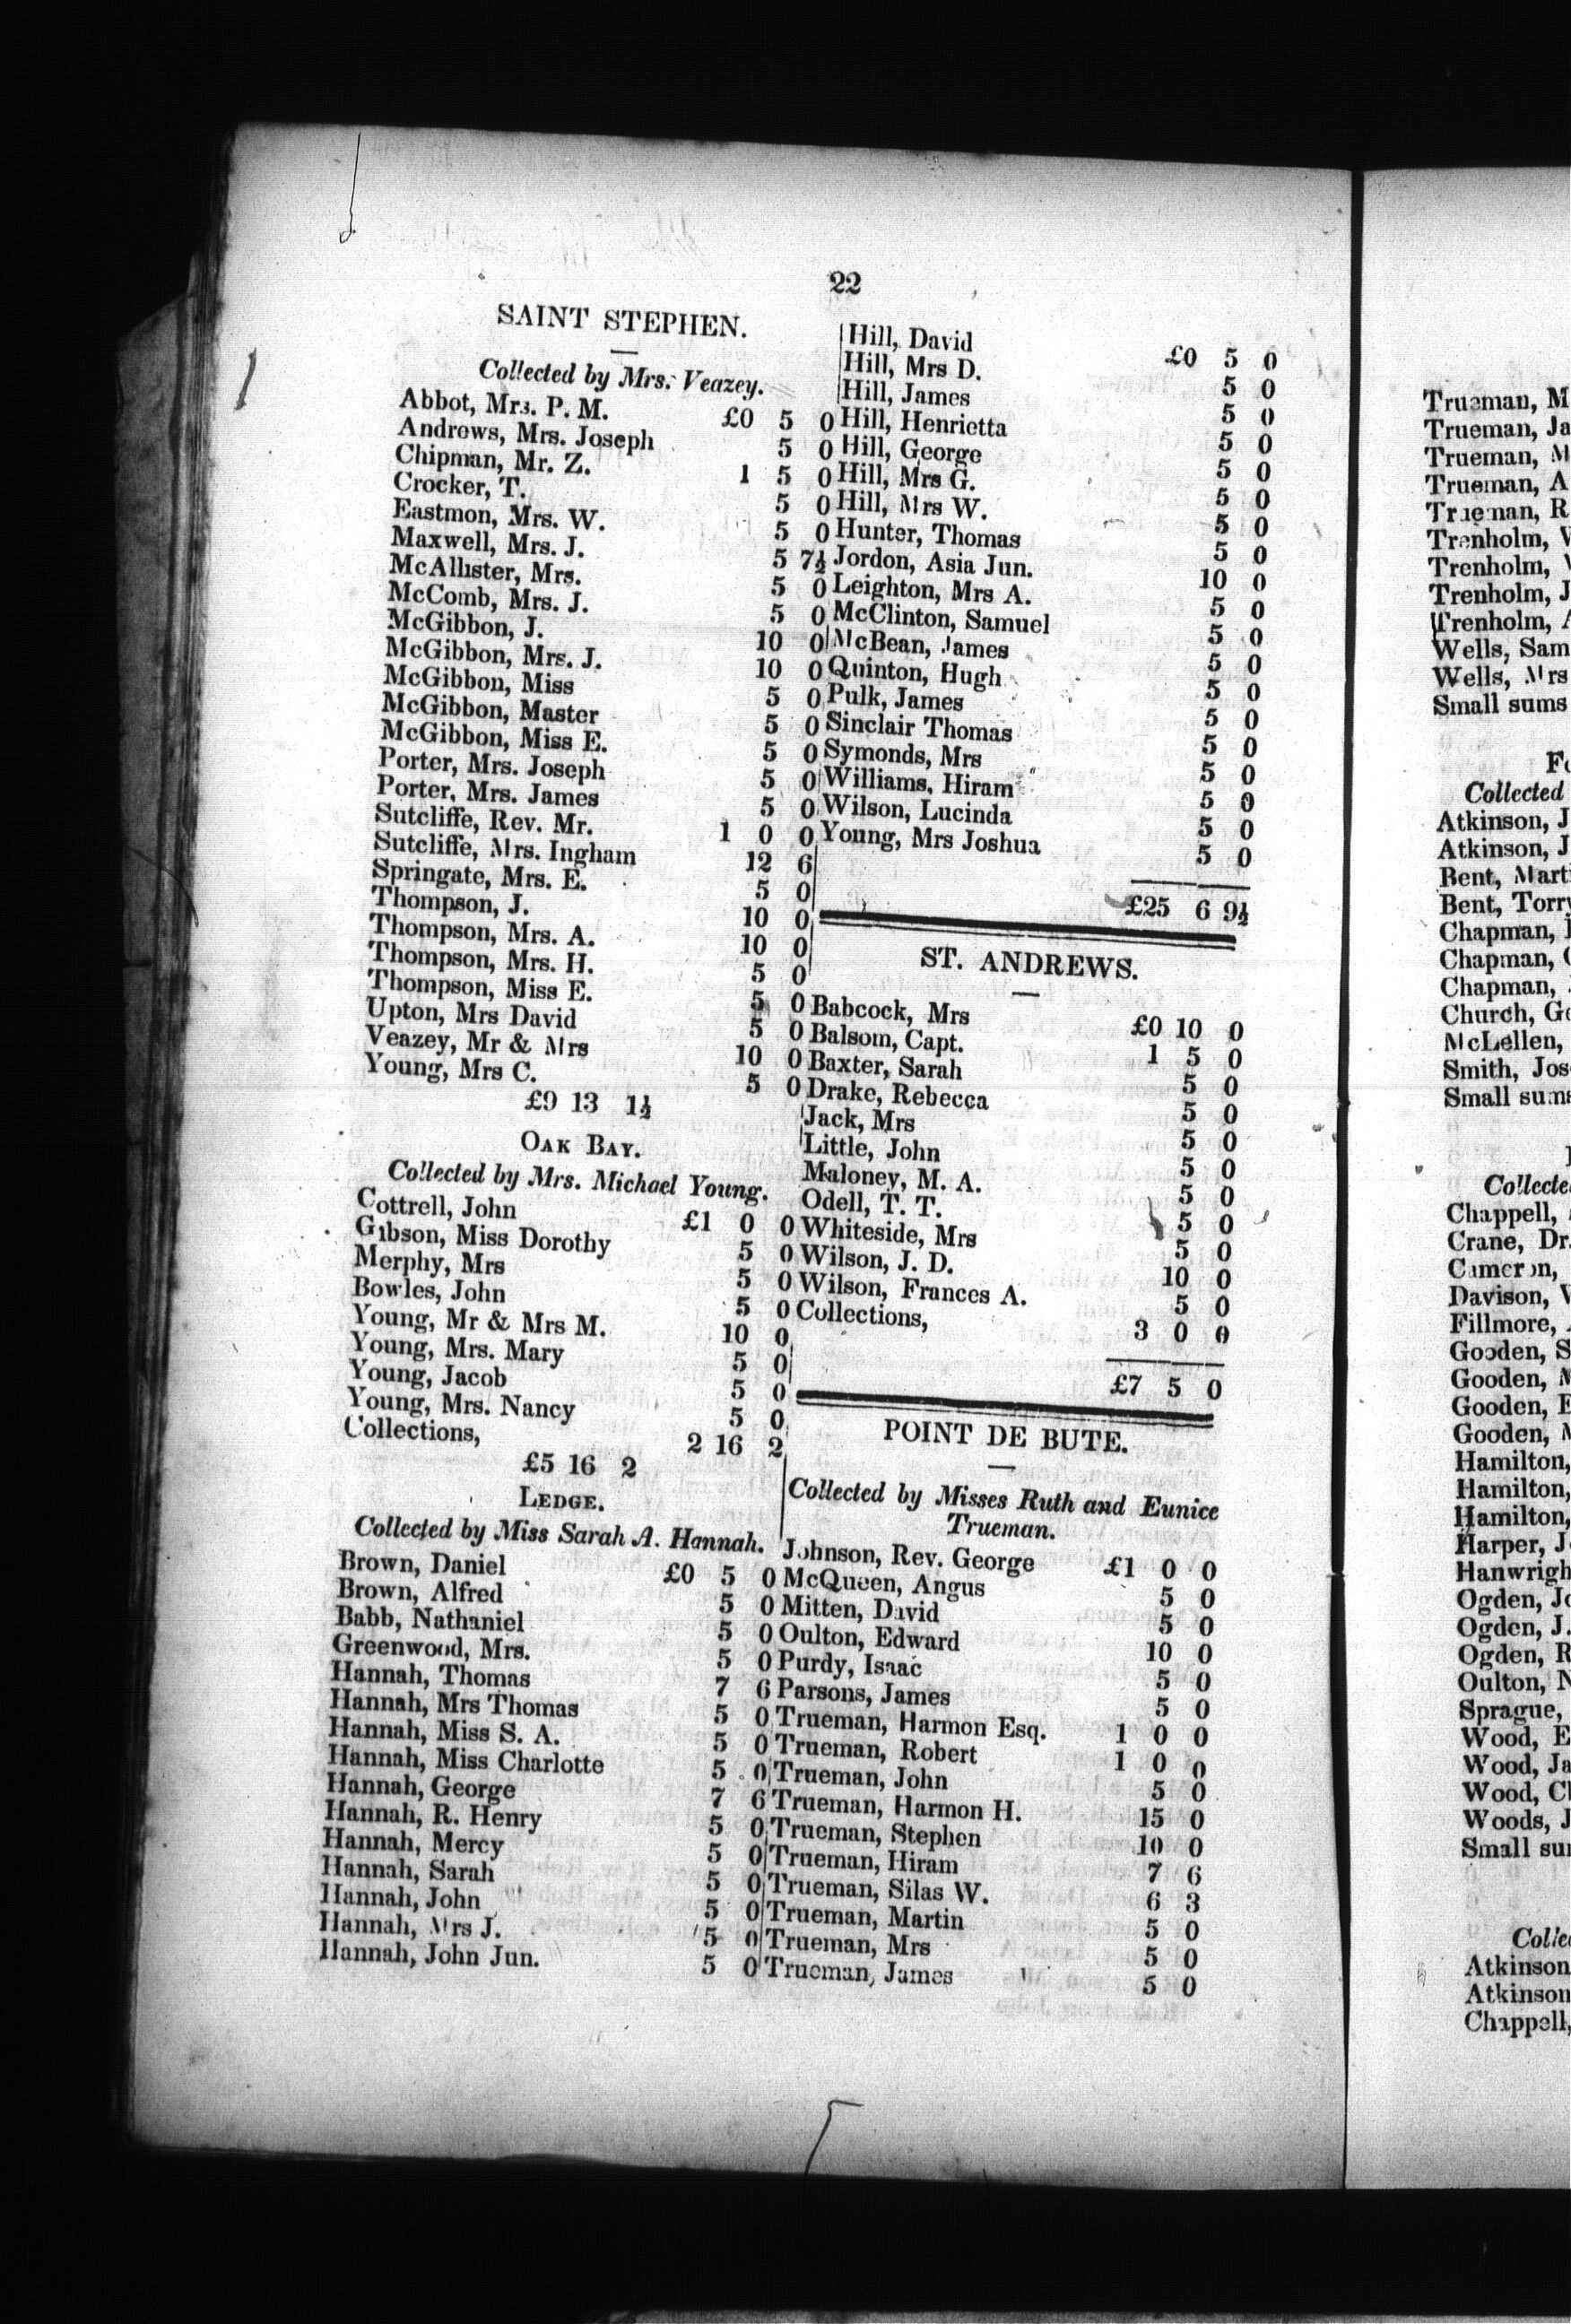 22
SAINT STEPHEN.
Collected by Mrs. Veazey.
Abbot, Mrs. P. M. £0 5 0
Andrews, Mrs. Joseph 5 0
Chipman, Mr. Z. 1 5 0
Crocker, T. 5 0
Eastmon, Mrs. W. 5 0
Maxwell, Mrs. J. 5 7½
McAllister, Mrs. 5 0
McComb, Mrs. J. 5 0
McGibbon, J. 10 0
McGibbon, Mrs. J. 10 0
McGibbon, Miss 5 0
McGibbon, Master 5 0
McGibbon, Miss E. 5 0
Porter, Mrs. Joseph 5 0
Porter, Mrs. James 5 0
Sutcliffe, Rev. Mr. 1 0 0
Sutcliffe, Mrs. Ingham 12 6
Springate, Mrs. E. 5 0
Thompson, J. 10 0
Thompson, Mrs. A. 10 0
Thompson, Mrs. H. 5 0
Thompson, Miss E. 5 0
Upton, Mrs David 5 0
Veazey, Mr & Mrs 10 0
Young, Mrs C. 5 0
£9 13 1½
OAK BAY.
Collected by Mrs. Michael Young.
Cottrell, John £1 0 0
Gibson, Miss Dorothy 5 0
Merphy, Mrs 5 0
Bowles, John 5 0
Young, Mr & Mrs M. 10 0
Young, Mrs. Mary 5 0
Young, Jacob 5 0
Young, Mrs. Nancy 5 0
Collections, 2 16 2
£5 16 2
LEDGE.
Collected by Miss Sarah A. Hannah.
Brown, Daniel £0 5 0
Brown, Alfred 5 0
Babb, Nathaniel 5 0
Greenwood, Mrs. 5 0
Hannah, Thomas 7 6
Hannah, Mrs Thomas 5 0
Hannah, Miss S. A. 5 0
Hannah, Miss Charlotte 5 0
Hannah, George 7 6
Hannah, R. Henry 5 0
Hannah, Mercy 5 0
Hannah, Sarah 5 0
Hannah, John 5 0
Hannah, Mrs J. 5 0
Hannah, John Jun. 5 0
Hill, David £0 5 0
Hill, Mrs D. 5 0
Hill, James 5 0
Hill, Henrietta 5 0
Hill, George 5 0
Hill, Mrs G. 5 0
Hill, Mrs W. 5 0
Hunter, Thomas 5 0
Jordon, Asia Jun. 10 0
Leighton, Mrs A. 5 0
McClinton, Samuel 5 0
McBean, James 5 0
Quinton, Hugh 5 0
Pulk, James 5 0
Sinclair Thomas 5 0
Symonds, Mrs 5 0
Williams, Hiram 5 0
Wilson, Lucinda 5 0
Young, Mrs Joshua 5 0
£25 6 9½
ST. ANDREWS.
Babcock, Mrs £0 10 0
Balsom, Capt. 1 5 0
Baxter, Sarah 5 0
Drake, Rebecca 5 0
Jack, Mrs 5 0
Little, John 5 0
Maloney, M. A. 5 0
Odell, T. T. 5 0
Whiteside, Mrs 5 0
Wilson, J. D. 10 0
Wilson, Frances A. 5 0
Collections, 3 0 0
£7 5 0
POINT DE BUTE.
Collected by Misses Ruth and Eunice
Trueman.
Johnson, Rev. George £1 0 0
McQueen, Angus 5 0
Mitten, David 5 0
Oulton, Edward 10 0
Purdy, Isaac 5 0
Parsons, James 5 0
Trueman, Harmon Esq. 1 0 0
Trueman, Robert 1 0 0
Trueman, John 5 0
Trueman, Harmon H. 15 0
Trueman, Stephen 10 0
Trueman, Hiram 7 6
Trueman, Silas W. 6 3
Trueman, Martin 5 0
Trueman, Mrs 5 0
Trueman, James 5 0
Trueman, M
Trueman, Ja
Trueman, M
Trueman, A
Trueman, R
Trenholm, W
Trenholm,
Trenholm, J
Trenholm, A
Wells, Sam
Wells, Mrs
Small sums
Collected
Atkinson, J
Atkinson, J
Bent, Marti
Bent, Torry
Chapman,
Chapman,
Chapman,
Church, Ge
McLellen,
Smith, Jos
Small sums
Collecte
Chappell,
Crane, Dr.
Cameron,
Davison, W
Fillmore,
Gooden, S
Gooden, M
Gooden, E
Gooden, M
Hamilton,
Hamilton,
Hamilton,
Harper, J
Hanwrigh
Ogden, Jo
Ogden, J.
Ogden, R
Oulton, N
Sprague,
Wood, E
Wood, Ja
Wood, Cl
Woods, J
Small su
Colle
Atkinson
Atkinson
Chappell,